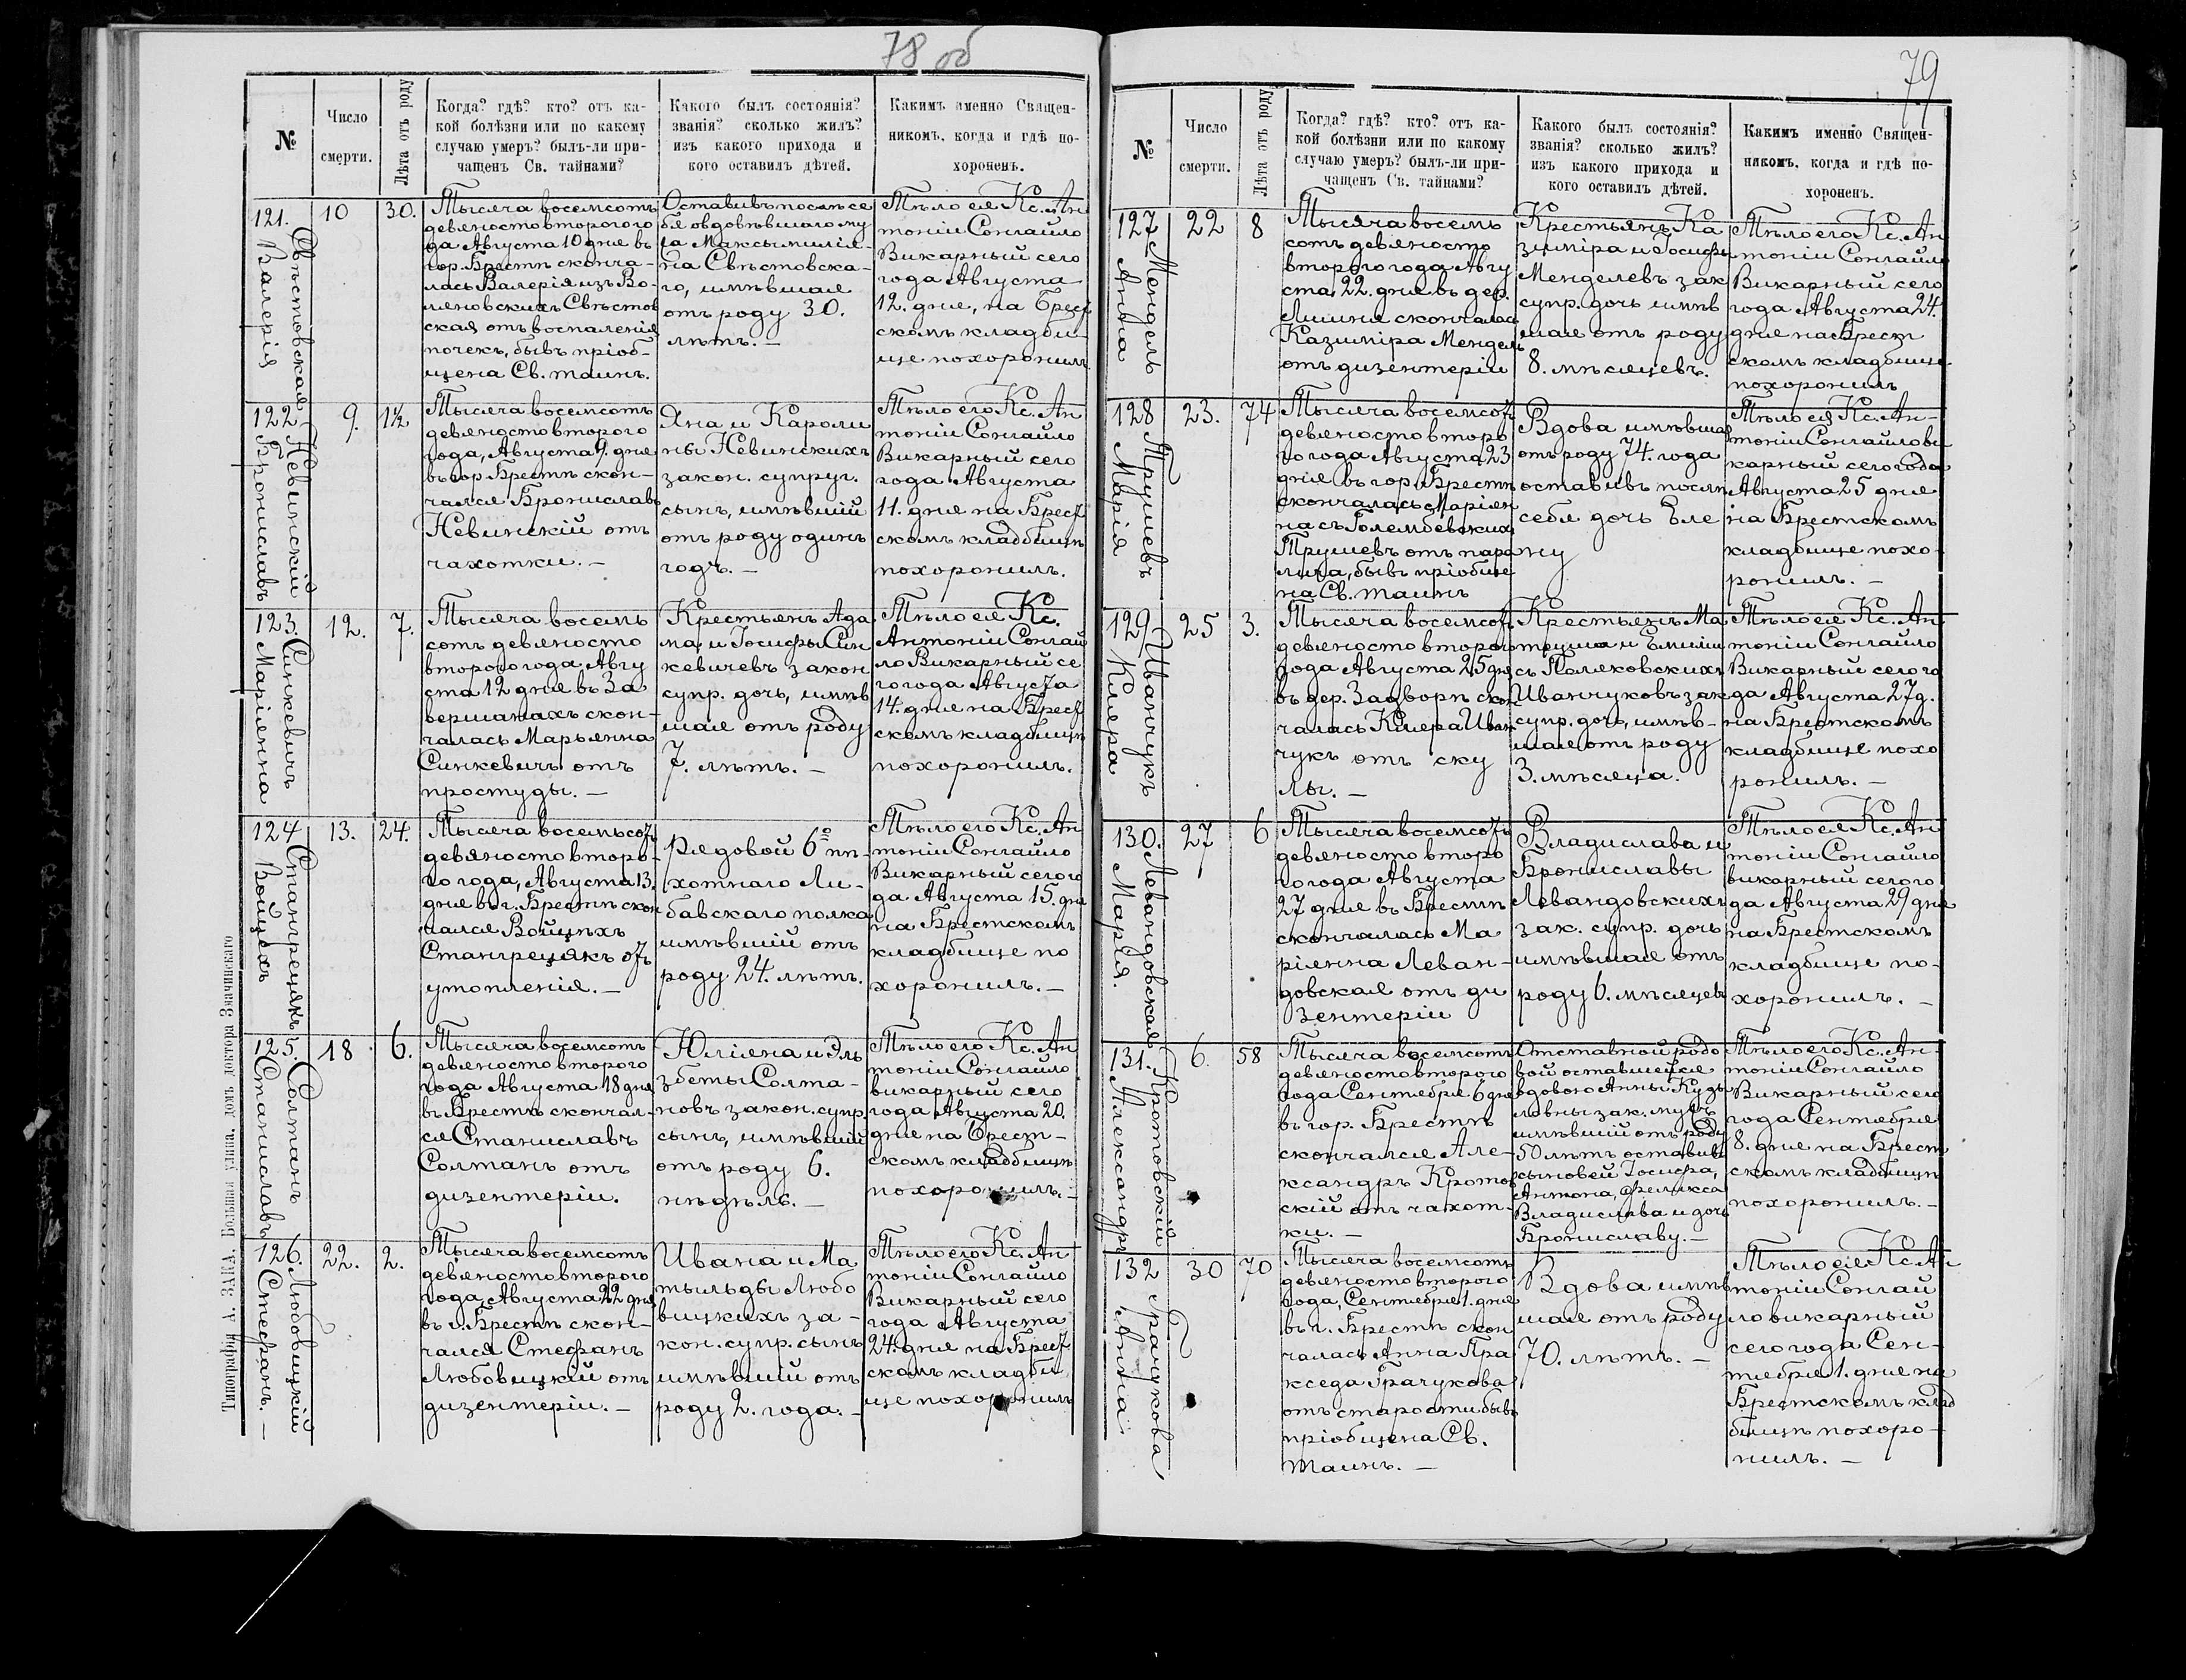 78 об
№
Число
смерти.
Лѣта отъ роду
Когда? гдѣ? кто? отъ ка-
кой болѣзни или по какому
случаю умеръ? былъ-ли при-
чащенъ Св. тайнами?
Какого былъ состоянія?
званія? сколько жилъ?
изъ какого прихода и
кого оставилъ дѣтей.
Какимъ именно Священ-
никомъ, когда и гдѣ по-
хороненъ.
121.
Свѣстовская
Валерія
10
30.
Тысяча восемсотъ
девяносто второго го
да Августа 10 дня въ
гор. Брестѣ сконча-
лась Валерія изъ Во-
ская отъ воспаленія
почекъ, бывъ пріоб-
щена Св. таинъ.
Оставивъ послѣ се
бя овдовѣвшаго му
жа Максымилія-
на Свѣстовска-
го, имѣвшая
отъ роду 30.
лѣтъ. –
Тѣло ея Кс. Ан
тоній Сонгайло
Викарный сего
года Августа
12. дня, на Брест
скомъ кладби-
ще похоронилъ
122
Невинскій
Брониславъ
9.
1½
Тысяча восемсотъ
девяносто второго
года, Августа 9. дня
въ гор Брестѣ скон-
чался Брониславъ
Невинскій отъ
чахотки. –
Яна и Кароли
ны Невинскихъ
закон. супруг.
сынъ, имѣвшій
отъ роду одинъ
годъ. –
Тѣло его Кс. Ан
тоній Сонгайло
Викарный сего
года Августа
11. дня на Брест
скомъ кладбищѣ
похоронилъ.
123.
Синкевичъ
Маріянна
12.
7.
Тысяча восемь
сотъ девяносто
второго года, Авгу
ста 12 дня въ За
вершанахъ скон-
чалась Марьянна
Синкевичъ отъ
простуды. –
Крестьянъ Ада
ма и Іосифы Син
кевичевъ закон
супр. дочь, имѣв
шая отъ роду
7. лѣтъ. –
Тѣло ея Кс.
Антоній Сонгай
ло Викарный се
го года Августа
14. дня на Брест
скомъ кладбищѣ
похоронилъ.
124
Стангрецякъ
Войцехъ
13.
24.
Тысяча восемьсотъ
девяносто второ-
го года, Августа 13.
дня въ г. Брестѣ скон
чался Войцѣхъ
Стангрецякъ отъ
утопленія. –
Рядовой 6го пѣ-
хотнаго Ли-
бавскаго полка
имѣвшій отъ
роду 24. лѣтъ.
Тѣло его Кс. Ан
тоній Сонгайло
Викарный сего го
да Августа 15. дня
на Брестскомъ
кладбище по
хоронилъ. –
125.
Солтанъ
Станиславъ
18
6.
Тысяча восемсотъ
девяносто второго
года Августа 18 дня
въ Брестѣ скончал-
ся Станиславъ
Солтанъ отъ
дизентеріи.
Юліяна и Эль
збеты Солта-
новъ закон. супр.
сынъ, имѣвшій
отъ роду 6.
недѣль. –
Тѣло его Кс. Ан
тоній Сонгайло
викарный сего
года Августа 20.
дня на Брест-
скомъ кладбищѣ
похоронилъ. –
126.
Любовицкій
Стефанъ. –
22.
2.
Тысяча восемсотъ
девяносто второго
года, Августа 22 дня
въ г. Брестѣ скон-
чался Стефанъ
Любовицкій отъ
дизентеріи. –
Ивана и Ма
тыльды Любо
вицкихъ за-
кон. супр. сынъ
имѣвшій отъ
роду 2. года. –
Тѣло его Кс. Ан-
тоній Сонгайло
Викарный сего
года Августа
24. дня на Брест
скомъ кладби
ще похоронилъ
Типографія А. ЗАКА, Большая улица, домъ доктора Значинскаго
79
№
Число
смерти.
Лѣта отъ роду
Когда? гдѣ? кто? отъ ка-
кой болѣзни или по какому
случаю умеръ? былъ-ли при-
чащенъ Св. тайнами?
Какого былъ состоянія?
званія? сколько жилъ?
изъ какого прихода и
кого оставилъ дѣтей.
Какимъ именно Священ-
никомъ, когда и гдѣ по-
хороненъ.
127
Мендель
Анна
22
8
Тысяча восемь
сотъ девяносто
второго года Авгу
ста 22. дня въ дер.
скончалась
Казиміра Мендель
отъ дизентеріи
Крестьянъ Ка
зиміра и Іосифы
Менделевъ зак
супр. дочь имѣв
шая отъ роду
8. мѣсяцевъ.
Тѣло его Кс. Ан
тоній Сонгайло
Викарный сего
года Августа 24.
дня на Брест
скомъ кладбище
похоронилъ
128
Трушевъ
Марія
23.
74
Тысяча восемсотъ
девяносто второ
го года Августа 23
дня въ гор. Брестѣ
скончалась Маріян
на съ Голембевскихъ
Трушевъ отъ пара
лича, бывъ пріобще
на Св. таинъ
Вдова имѣвшая
отъ роду 74. года
оставивъ послѣ
себя дочь Еле
ну
Тѣло ея Кс. Ан-
тоній Сонгайло ви
карный сего года
Августа 25 дня
на Брестскомъ
кладбище похо-
ронилъ. –
129
Иванчукъ
Клера
25
3.
Тысяча восемсотъ
девяносто второго
года Августа 25 дня
въ дер. Задворѣ скон
чалась Клера Иван
чукъ отъ ску
лы. –
Крестьянъ Ма
теуша и Емиліи
съ Поляковскихъ
Иванчуковъ зак
супр. дочь, имѣв-
шая отъ роду
3. мѣсяца.
Тѣло ея Кс. Ан
тоній Сонгайло
Викарный сего го
да Августа 27 д.
на Брестскомъ
кладбище похо
ронилъ. –
130.
Левандовская
Марія.
27
6
Тысяча восемсотъ
девяносто второ
го года Августа
27 дня въ Брестѣ
скончалась Ма
ріянна Леван-
довская отъ ди
зентеріи
Владислава и
Брониславы
Левандовскихъ
зак. супр. дочь
имѣвшая отъ
роду 6. мѣсяцевъ
Тѣло ея Кс. Ан
тоній Сонгайло
викарный сего го
да Августа 29 дня
на Брестскомъ
кладбище по-
хоронилъ. –
131.
Кротовскій
Александръ
6.
58
Тысяча восемсотъ
девяносто второго
года Сентября 6 дня
въ гор. Брестѣ
скончался Але-
ксандръ Кротов
скій отъ чахот-
ки. –
Отставной рядо
вой оставшейся
вдовою Анны
зак. мужъ
имѣвшій отъ роду
50 лѣтъ оставивъ
сыновей Іосифа,
Антона, Феликса
Владислава и дочь
Брониславу. –
Тѣло его Кс. Ан-
тоній Сонгайло
Викарный сего
года Сентября
8. дня на Брест
скомъ кладбищѣ
похоронилъ. –
132
Грачукова
Анна
30
70
Тысяча восемсотъ
девяносто второго
года, Сентября 1. дня
въ г. Брестѣ скон
чалась Анна Пра
кседа Грачукова
отъ старости бывъ
пріобщена Св.
таинъ. –
Вдова имѣв
шая отъ роду
70. лѣтъ. –
Тѣло ея Кс Ан
тоній Сонгай
ло викарный
сего года Сен-
тября 1. дня на
Брестскомъ клад
бищѣ похоро-
нилъ. –